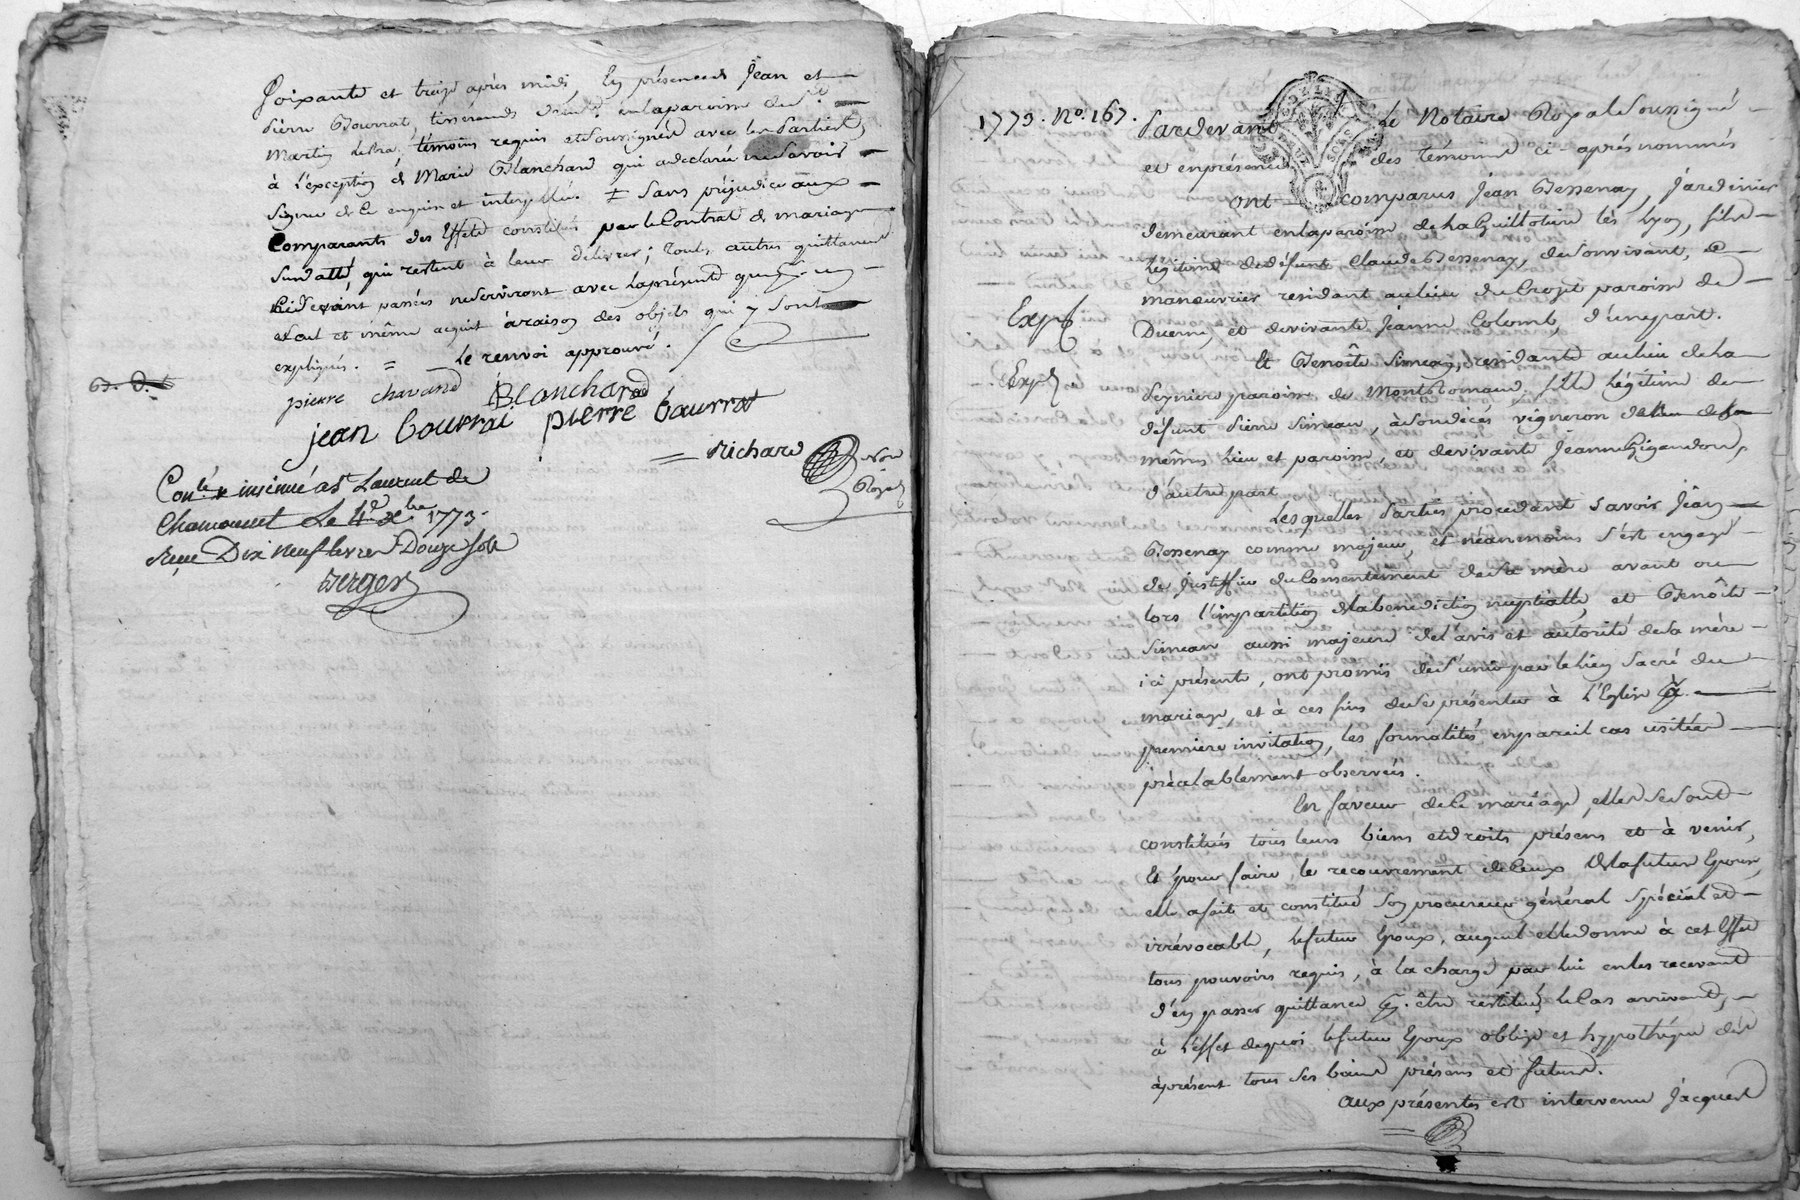 Soixante et treize après midi, En présence de Jean et
pierre Bourrat, tisserands demt. en la paroisse de St.
Martin témoins requis et soussignés avec les parties,
à l'exception de Marie Blanchard qui a declaré ne savoir
signer de ce enquise et interpellée. ‡ Sans préjudice aux
Comparants des Effets constitués par le Contrat de mariage
susdatté, qui restent à leur délivrer; toutes autres quittances
cidevant passées ne serviront avec la présente que d'un
seul et même acquit à raison des objets qui y sont
expliqués. = le renvoi approuvé.
pierre chavand Blanchard
jean bourrat pierre bourrat
Richard Nore
Royal
Conlé & insinué a St Laurent de
Chamousset Le 4e Xbre 1773.
Reçu Dix neuf livres Douze sols
Berger
1773. No. 167.
Pardevant Le Notaire Royal Soussigné
et en présence des témoins ci-après nommés
ont comparus Jean Bessenay, Jardinier
demeurant en la paroisse de la Guillotière lès Lyon, fils
légitime de défunt Claude Bessenay, de son vivant,
manoeuvrier residant au lieu du Crojet paroisse de
Duerne, et de vivante Jeanne Colomb, d'une part.
Expé
Expé
Et Benoîte Simean, residante au lieu de la
paroisse de Montromand, fille légitime de
défunt Pierre Simean, à son décés vigneron
même lieu et paroisse, et de vivante Jeanne Gigandon,
d'autre part
Lesquelles Parties procedant savoir Jean
Bessenay comme majeur, et néanmoins s'est engagé
de justiffier du Consentement de sa mère avant ou
lors l'impartition de la benediction nuptialle, et Benoîte
Simean aussi majeure de l'avis et autorité de sa mère
ici présente, ont promis de s'unir par le lien sacré du
mariage, et à ces fins de se présenter à l'Eglise à
premiere invitation, les formalités en pareil cas usitées
préalablement observées.
En faveur de ce mariage, elles se sont
constitués tous leurs biens et droits présens et à venir,
Et pour faire le recouvrement de ceux de la future Epouse,
elle a fait et constitué son procureur général spécial et
irrévocable, le futur Epoux, auquel elle donne à cet Effet
tous pouvoirs requis, à la charge par lui en les recevant
d'en passer quittance être restitué, le Cas arrivant,
à l'effet de quoi le futur Epoux oblige et hypothèque dès
àprésent tous ses biens présens et futurs.
aux présentes est intervenu Jacques